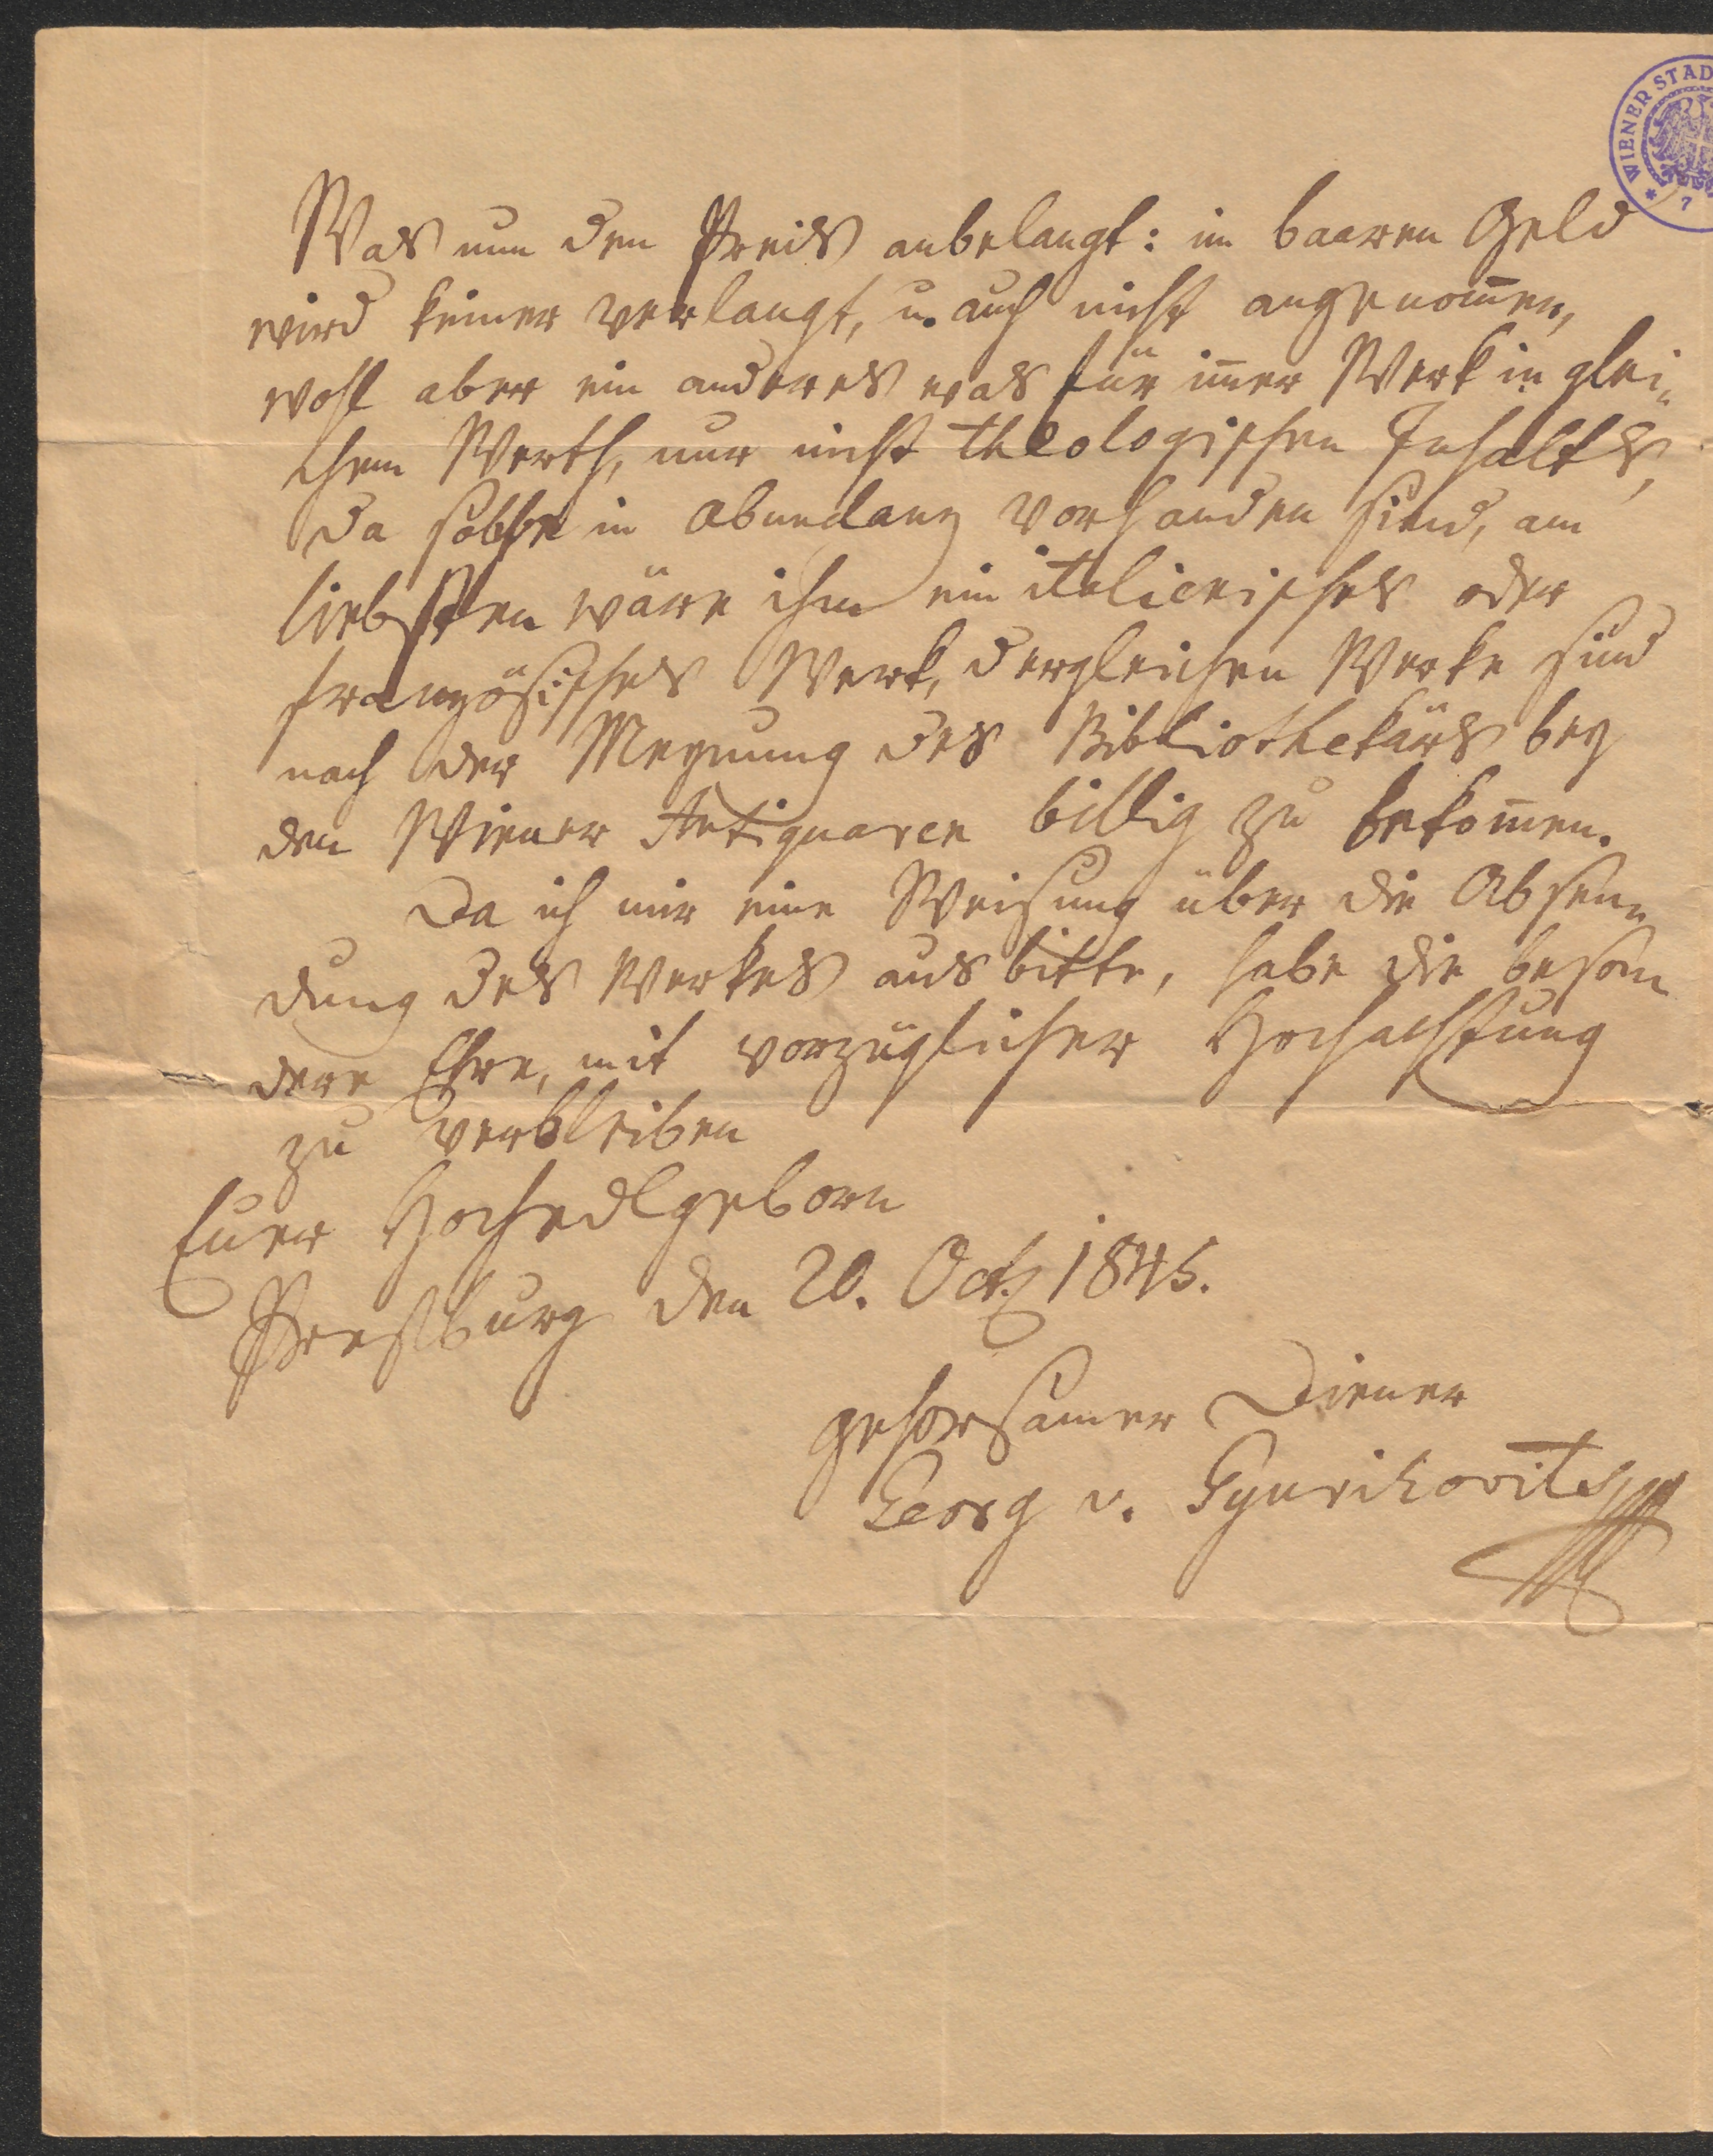 WIENER STAD
7
Was nun den Preis anbelangt: im baaren Geld
wird keiner verlangt, u. auch nicht angenom̅en,
wohl aber ein anderes was für im̅er Werk in glei„
chem Werth, nur nicht theologischen Inhalts,
da solche in abundanz vorhanden sind, am
liebsten wäre ihm ein italienisches oder
französisches Werk, dergleichen Werke sind
nach der Meynung des Bibliothekärs bey
den Wiener Antiquaren billig zu bekom̅en.
Da ich mir eine Weisung über die Absen„
dung des Werkes ausbitte, habe die beson
dere Ehre, mit vorzüglicher Hochachtung
zu verbleiben
Euer Hochedlgeborn
Presßburg den 20. Oct. 1845.
gehorsamer Diener
Georg v. Gyurikovits